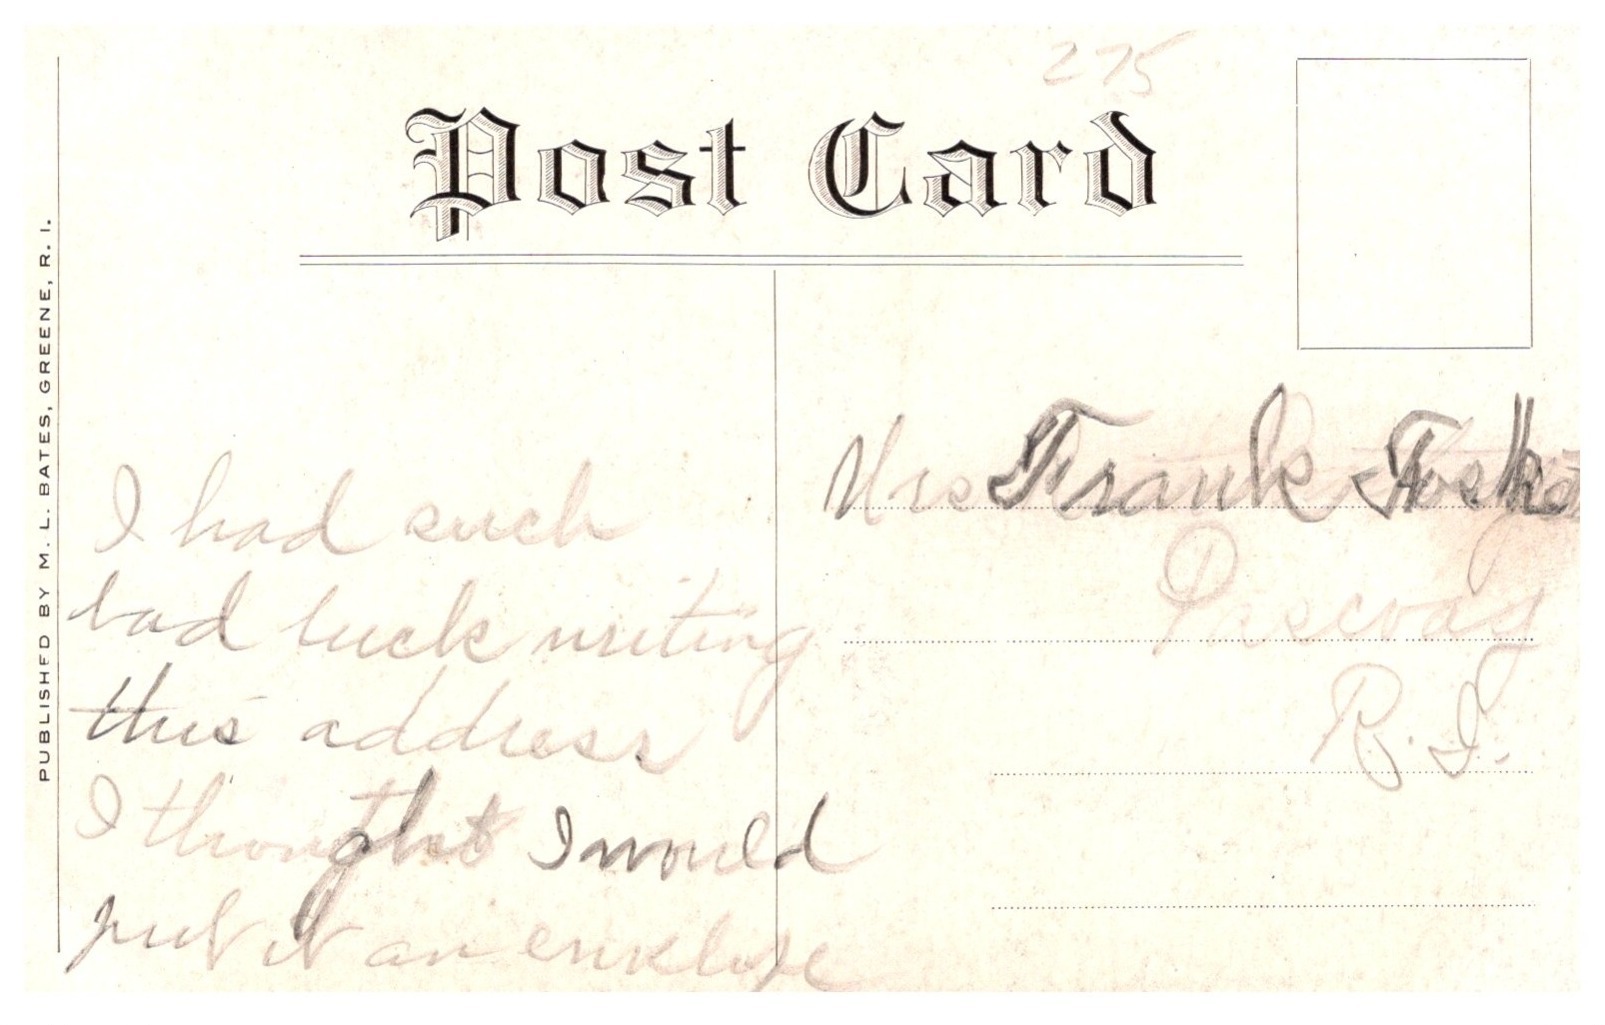 275
Post Card
PUBLISHED BY M. L. BATES, GREENE, R. I.
I had such
bad luck writing
this address
I thought I would
put it an enklope
Mrs Frank
Pascoag
R. I.